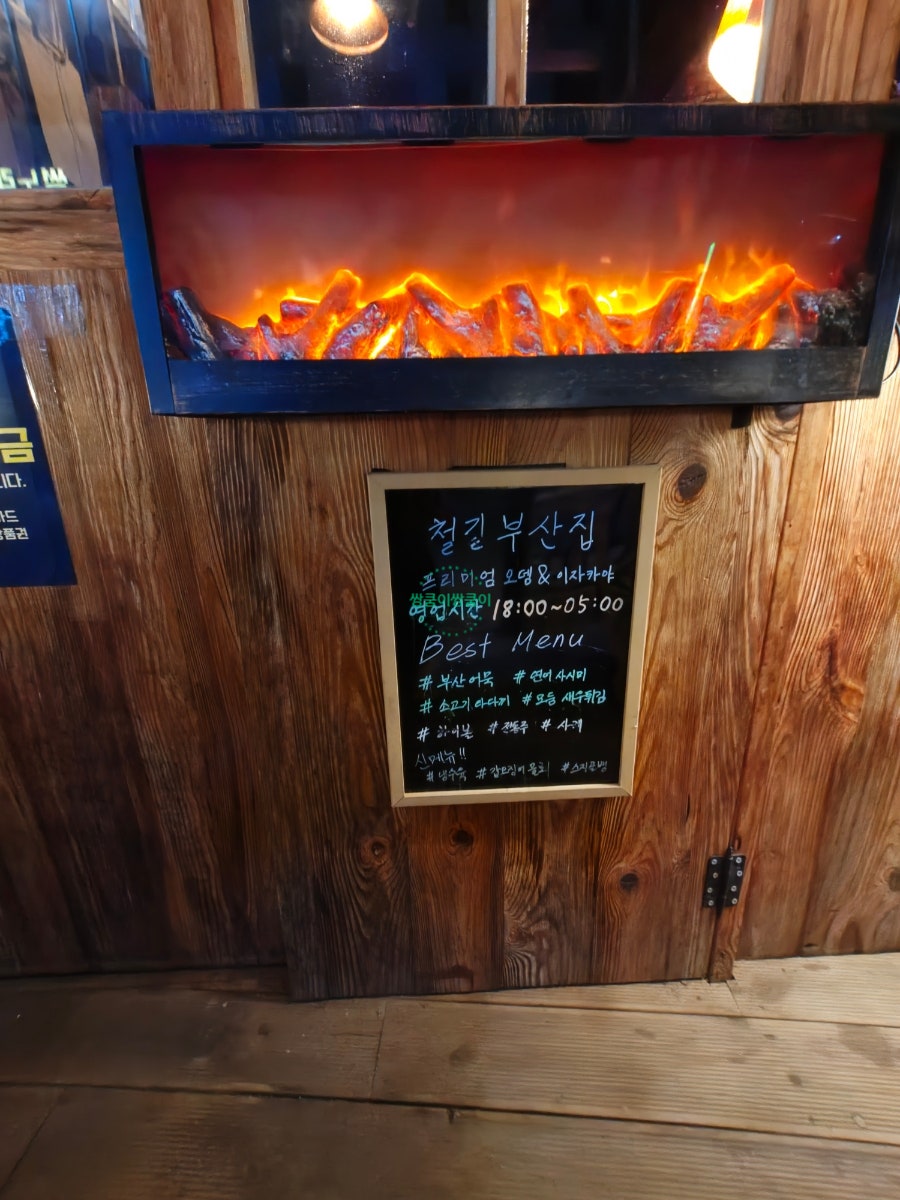 금
니다.
카드
상품권
철길부산집
프리미엄 오뎅 & 이자카야
쌈쿵이쌈쿵이
영업시간 18:00~05:00
Best Menu
# 부산어묵 # 연어 사시미
# 소고기 아다끼 # 모듬 새우튀김
# 하이볼 # 전통주 # 사케
신메뉴!!
# 냉수육 # 갑오징어 물회